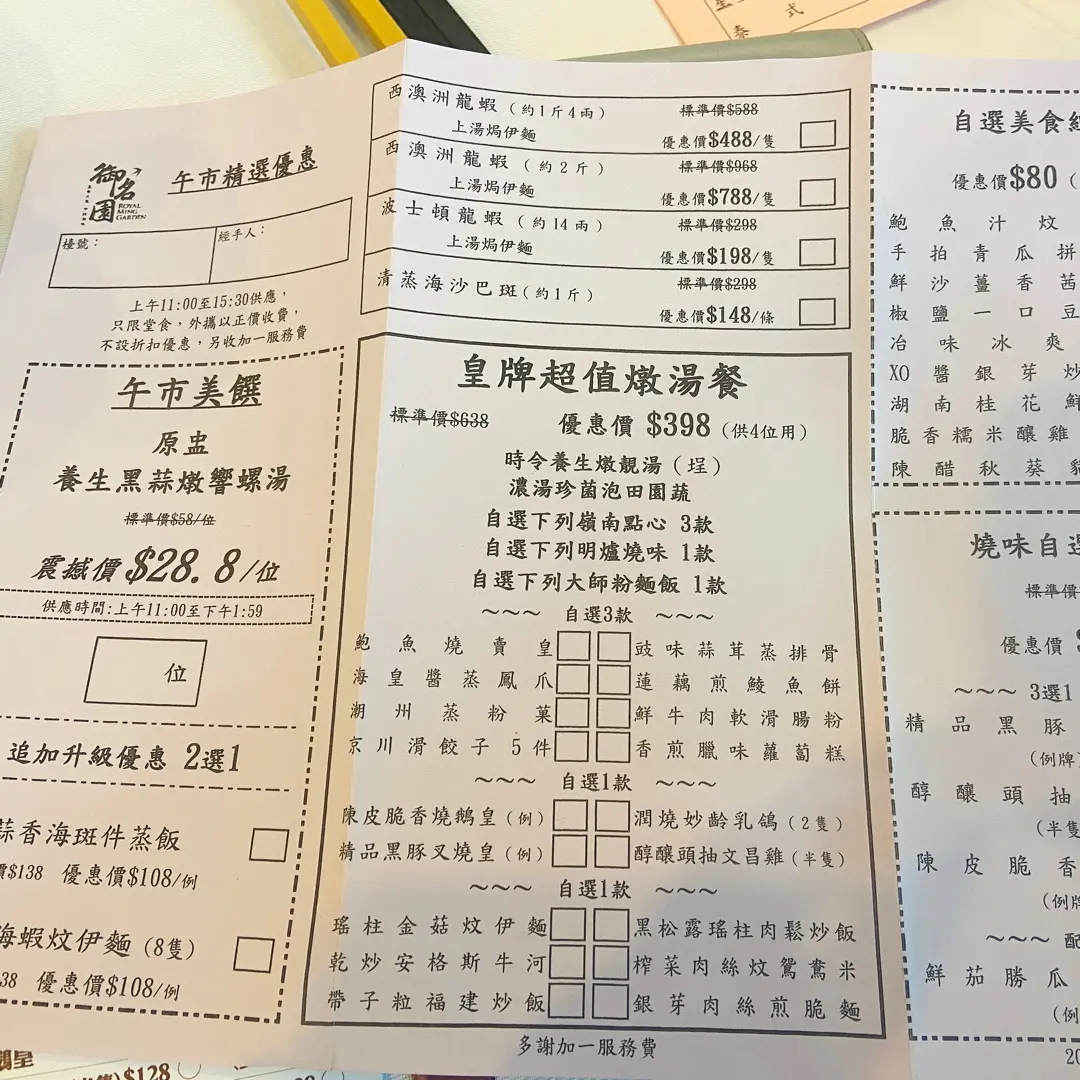 星
式
泰
御名園
ROYAL MING GARDEN
午市精選優惠
檯號：
經手人：
上午11:00至15:30供應，
只限堂食，外攜以正價收費，
不設折扣優惠，另收加一服務費
午市美饌
原盅
養生黑蒜燉響螺湯
標準價$58/位
震撼價$28.8/位
供應時間:上午11:00至下午1:59
位
追加升級優惠 2選1
蒜香海斑件蒸飯
價$138 優惠價$108/例
海蝦炆伊麵(8隻)
38 優惠價$108/例
西澳洲龍蝦(約1斤4兩) 標準價$588
上湯焗伊麵 優惠價$488/隻
西澳洲龍蝦(約2斤) 標準價$968
上湯焗伊麵 優惠價$788/隻
波士頓龍蝦(約14兩) 標準價$298
上湯焗伊麵 優惠價$198/隻
清蒸海沙巴斑(約1斤) 標準價$298
優惠價$148/條
皇牌超值燉湯餐
標準價$638 優惠價 $398(供4位用)
時令養生燉靚湯(埕)
濃湯珍菌泡田園蔬
自選下列嶺南點心 3款
自選下列明爐燒味 1款
自選下列大師粉麵飯 1款
～～～ 自選3款 ～～～
鮑魚燒賣皇 豉味蒜茸蒸排骨
海皇醬蒸鳳爪 蓮藕煎鯪魚餅
潮州蒸粉菓 鮮牛肉軟滑腸粉
京川滑餃子5件 香煎臘味蘿蔔糕
～～～ 自選1款 ～～～
陳皮脆香燒鵝皇(例) 潤燒妙齡乳鴿(2隻)
精品黑豚叉燒皇(例) 醇釀頭抽文昌雞(半隻)
～～～ 自選1款 ～～～
瑤柱金菇炆伊麵 黑松露瑤柱肉鬆炒飯
乾炒安格斯牛河 榨菜肉絲炆鴛鴦米
帶子粒福建炒飯 銀芽肉絲煎脆麵
多謝加一服務費
自選美食
優惠價$80(
鮑魚汁炆
手拍青瓜拼
鮮沙薑香茜
椒鹽一口豆
冶味冰爽
XO醬銀芽炒
湖南桂花鮮
脆香糯米釀雞
陳醋秋葵
燒味自選
標準價
優惠價
～～～ 3選1
精品黑豚
(例牌)
醇釀頭抽
(半隻
陳皮脆香
(例牌
～～～ 配
鮮茄勝瓜
(例
20
鵝皇
$128